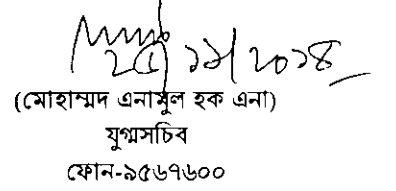 ২৫/১১/২০১৪
(মোহাম্মদ এনামুল হক এনা)
যুগ্মসচিব
ফোন-৯৫৬৭৬০০